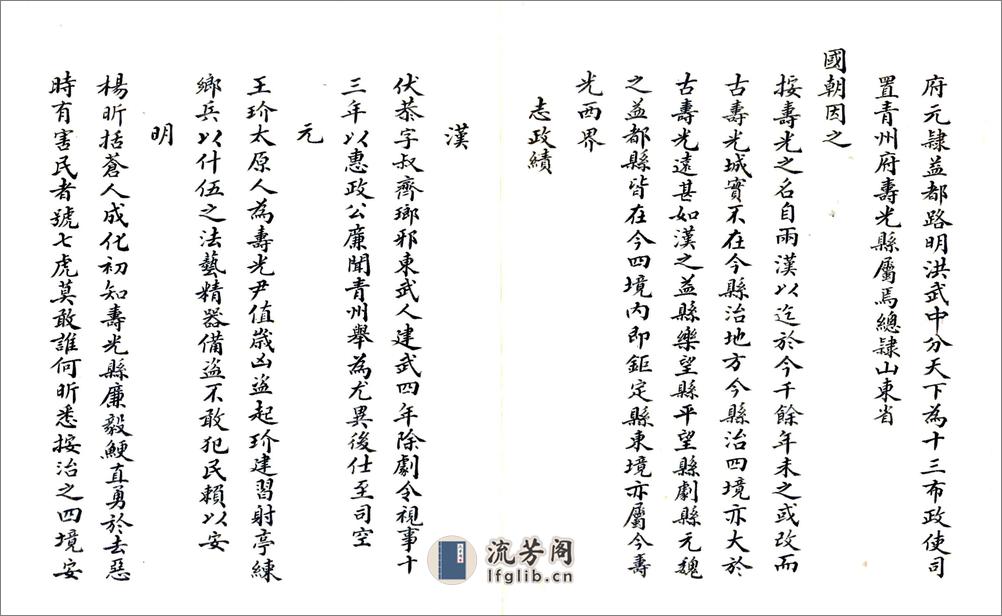 府元隷益都路明洪武中分天下為十三布政使司
置青州府壽光縣屬焉總隷山東省
國朝因之
按壽光之名自兩漢以迄於今千餘年未之或改而
古壽光城實不在今縣治地方今縣治四境亦大於
古壽光遠甚如漢之益縣樂望縣平望縣劇縣元魏
之益都縣皆在今四境內即鉅定縣東境亦屬今壽
光西界
志政績
漢
伏恭字叔齊瑯邪東武人建武四年除劇令視事十
三年以惠政公廉聞青州舉為尤異後仕至司空
元
王玠太原人為壽光尹值歲凶盜起玠建習射亭練
鄉兵以什伍之法藝精器備盜不敢犯民賴以安
明
楊昕括蒼人成化初知壽光縣廉毅鯁直勇於去惡
時有害民者號七虎莫敢誰何昕悉按治之四境安
流芳閣
lfglib.cn